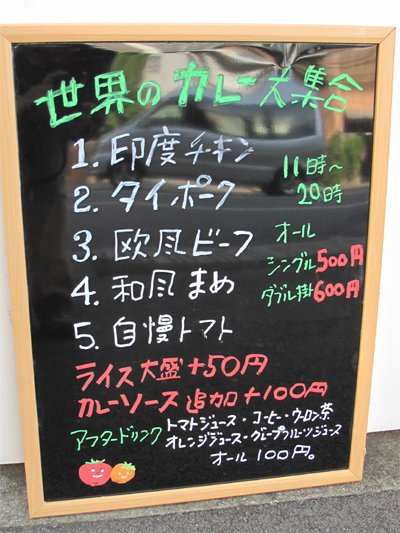 世界のカレー大集合
1. 印度チキン
2. タイポーク
3. 欧風ビーフ
4. 和風まめ
5. 自慢トマト
11時～
20時
オール
シングル500円
ダブル掛600円
ライス大盛+50円
カレーソース追加+100円
アフタードリンク
トマトジュース・コーヒー・ウーロン茶
オレンジジュース・グレープフルーツジュース
オール100円。